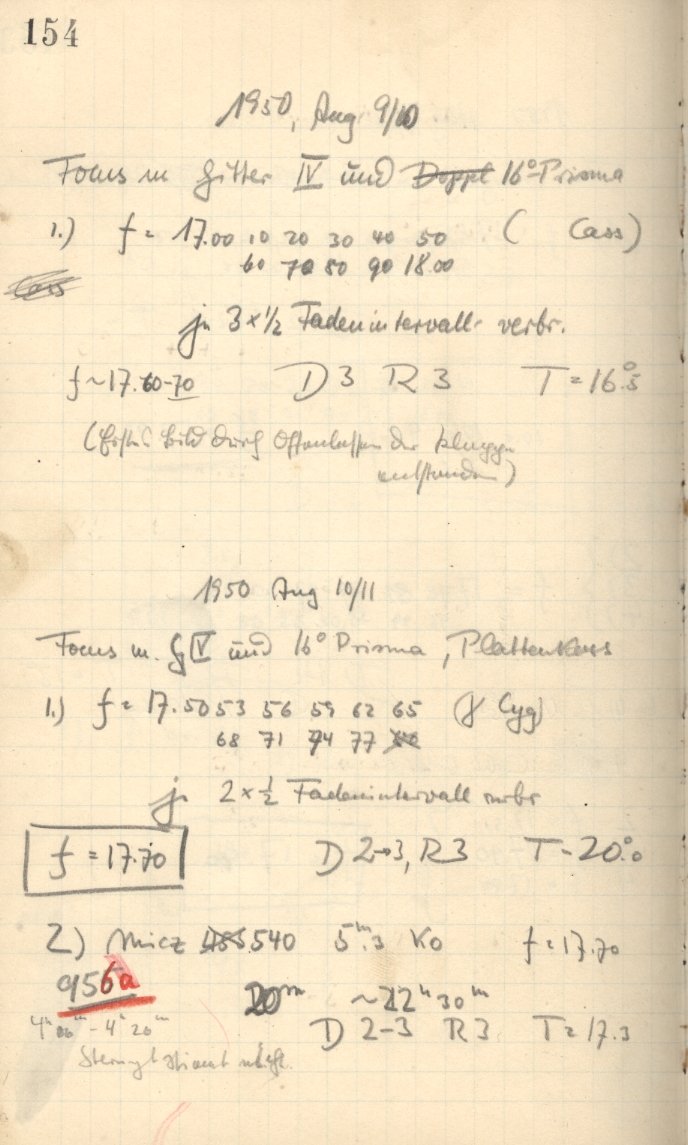 154
1950, Aug 9/10
Focus m Gitter IV und Doppl 16°-Prisma
1.) f = 17.00 10 20 30 40 50 ( Cass)
60 70 80 90 18.00
Cass
je 3 × 1/2 Fadenintervall verbr.
f ~ 17.60-70 D 3 R 3 T = 16°.5
(Erstes Bild durch Offenlassen der Klappe
entstanden)
1950 Aug 10/11
Focus m. G IV und 16° Prisma, Plattenkass
1.) f = 17.50 53 56 59 62 65 (γ Cyg)
68 71 74 77 80
je 2 × 1/2 Fadenintervall verbr
f = 17.70 D 2→3, R3 T = 20°.0
2) 540 5m.3 K0 f = 17.70
956a 20m ~22h 30m
4h 00m - 4h 20m D 2-3 R 3 T = 17.3
stimmt nicht.